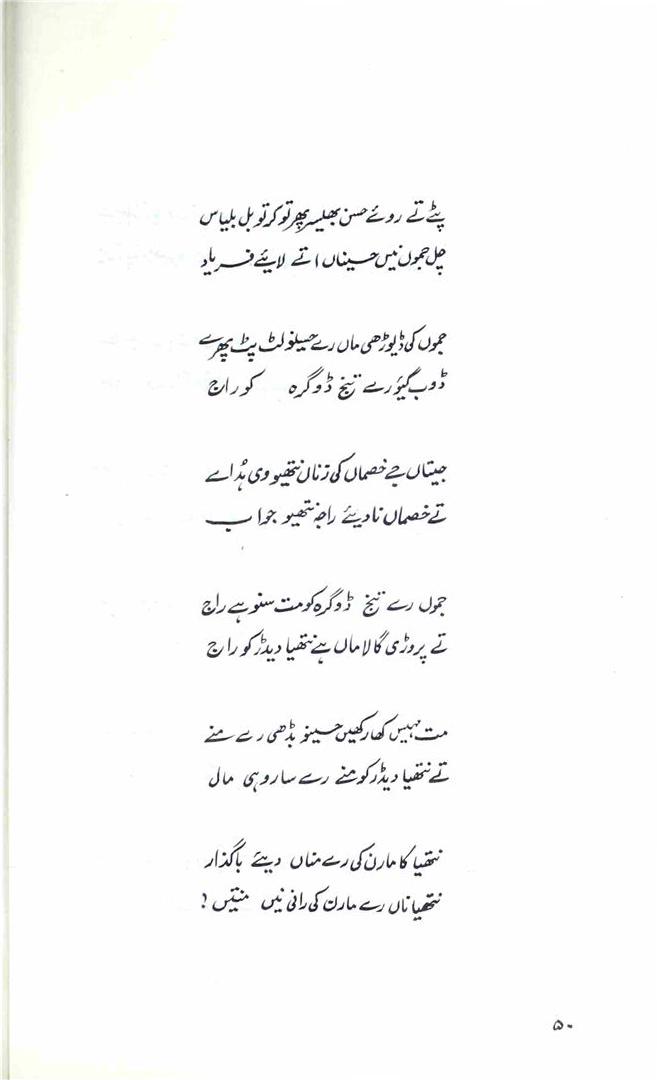 پٹے تے روئے حسن بھلیسر پھر تو کر تو بل بلیاس
چل جموں نیں حسیناں اتے لایئے فریاد
جموں کی ڈیوڑھی ماں رے حسینو لٹ پٹ پھرے
ڈوب گیؤ رے تیخ ڈوگرہ کو راج
جیتاں جے خصماں کی زناں نتھیو وی ہُداے
تے خصماں نا دیئے راجہ نتھیو جواب
جموں رے تیخ ڈوگرہ کو مت سنو ہے راج
تے پروڑی گالا ماں ہے نتھیا دیدڑ کو راج
مت مہیس کھا رکھیں حسینو بڈھی رے منے
تے نتھیا دیدڑ کو منے رے سارو ہی مال
نتھیا کا مارن کی رے مناں دیئے باگذار
نتھیا ناں رے مارن کی رانی نیں منتیں ؟
۵۰